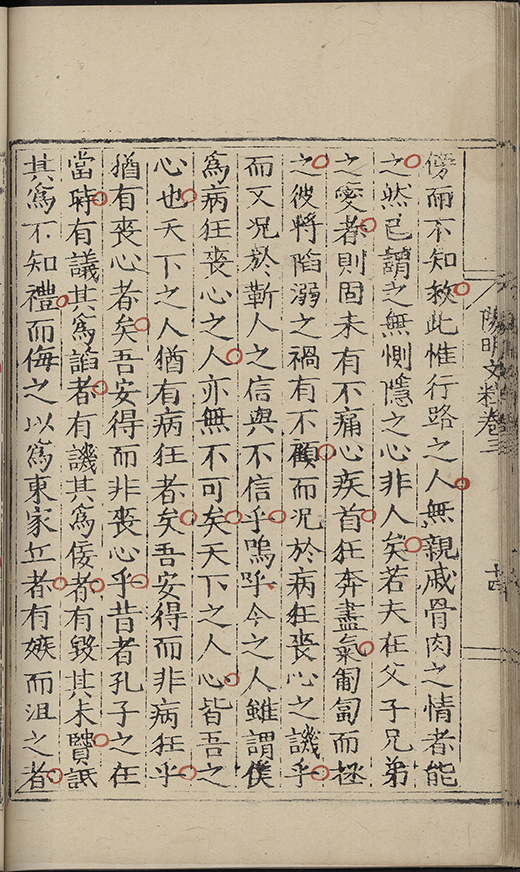 陽明文粹卷三 十四
傍而不知救此惟行路之人無親戚骨肉之情者能
之然已謂之無惻隱之心非人矣若夫在父子兄弟
之愛者則固未有不痛心疾首狂奔盡氣匍匐而拯
之彼將陷溺之禍有不顧而况於病狂喪心之譏乎
而又况於蘄人之信與不信乎嗚呼今之人雖謂僕
爲病狂喪心之人亦無不可矣天下之人心皆吾之
心也天下之人猶有病狂者矣吾安得而非病狂乎
猶有喪心者矣吾安得而非喪心乎昔者孔子之在
當時有議其爲諂者有譏其爲佞者有毀其未賢詆
其爲不知禮而侮之以爲東家丘者有嫉而沮之者